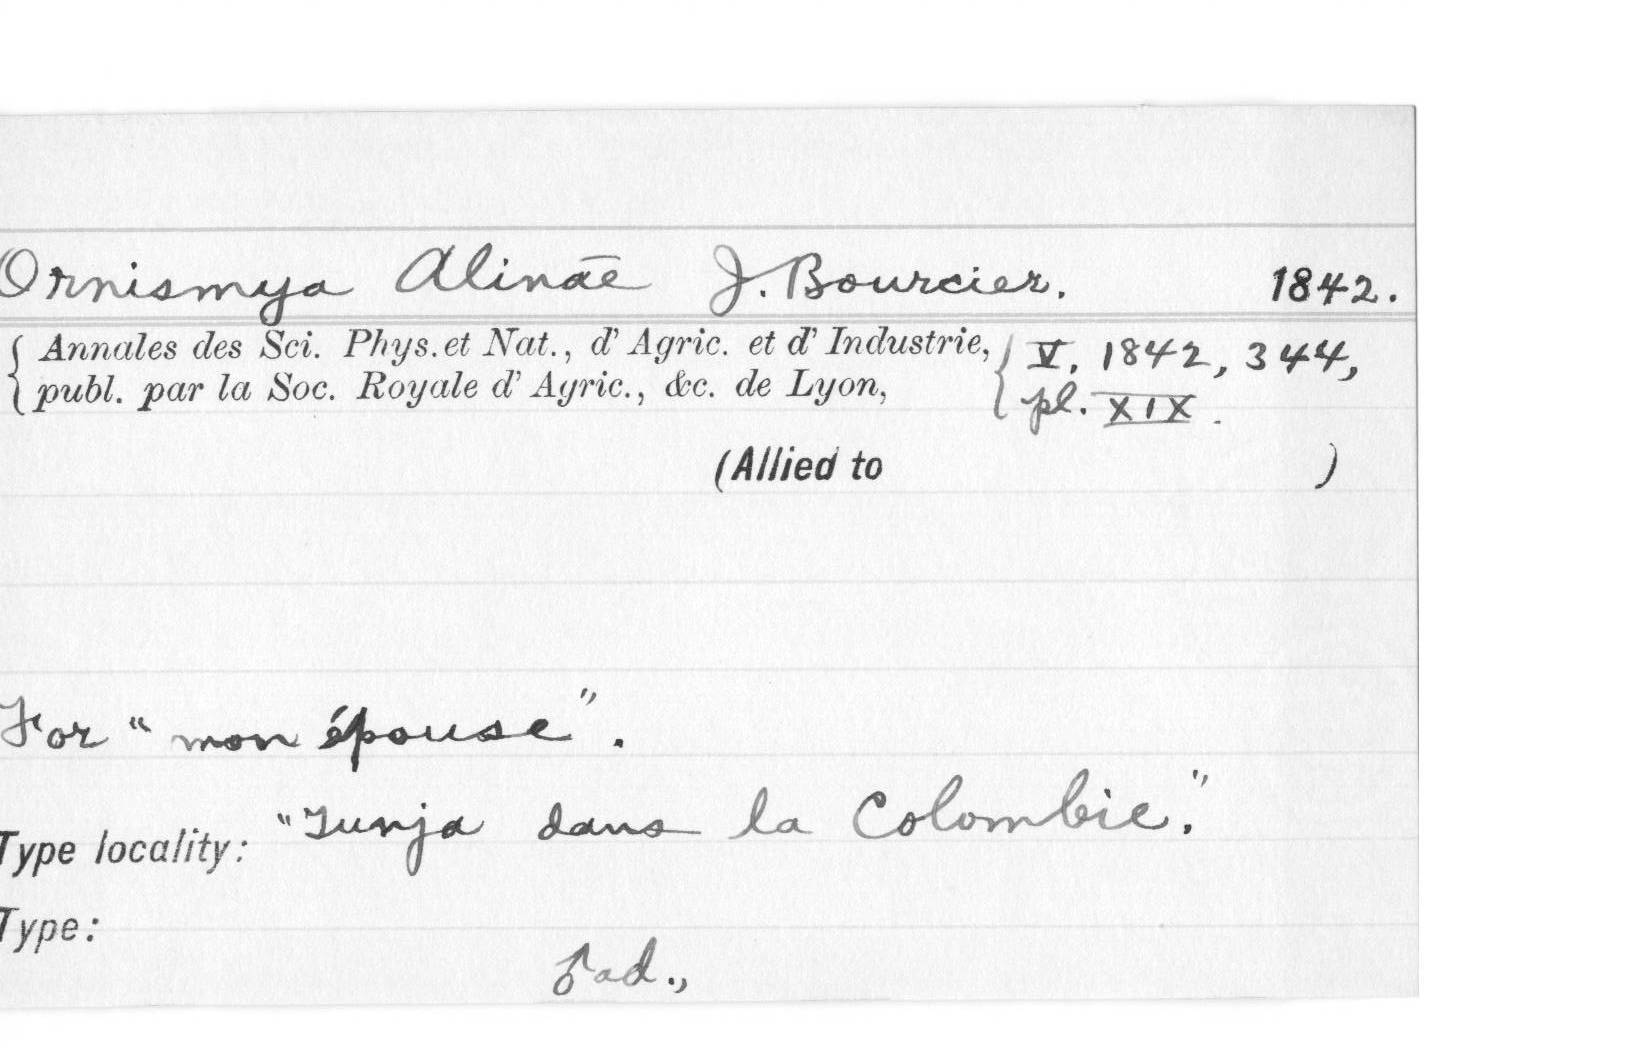 Ornismya Alinae J. Bourcier. 1842.
{ Annales des Sci. Phys. et Nat., d' Agric. et d' Industrie, { V, 1842, 344,
publ. par la Soc. Royale d' Agric., &c. de Lyon, pl. XIX.
(Allied to )
For "mon épouse".
Type locality: "Tunja dans la Colombie."
Type:
♂ad.,